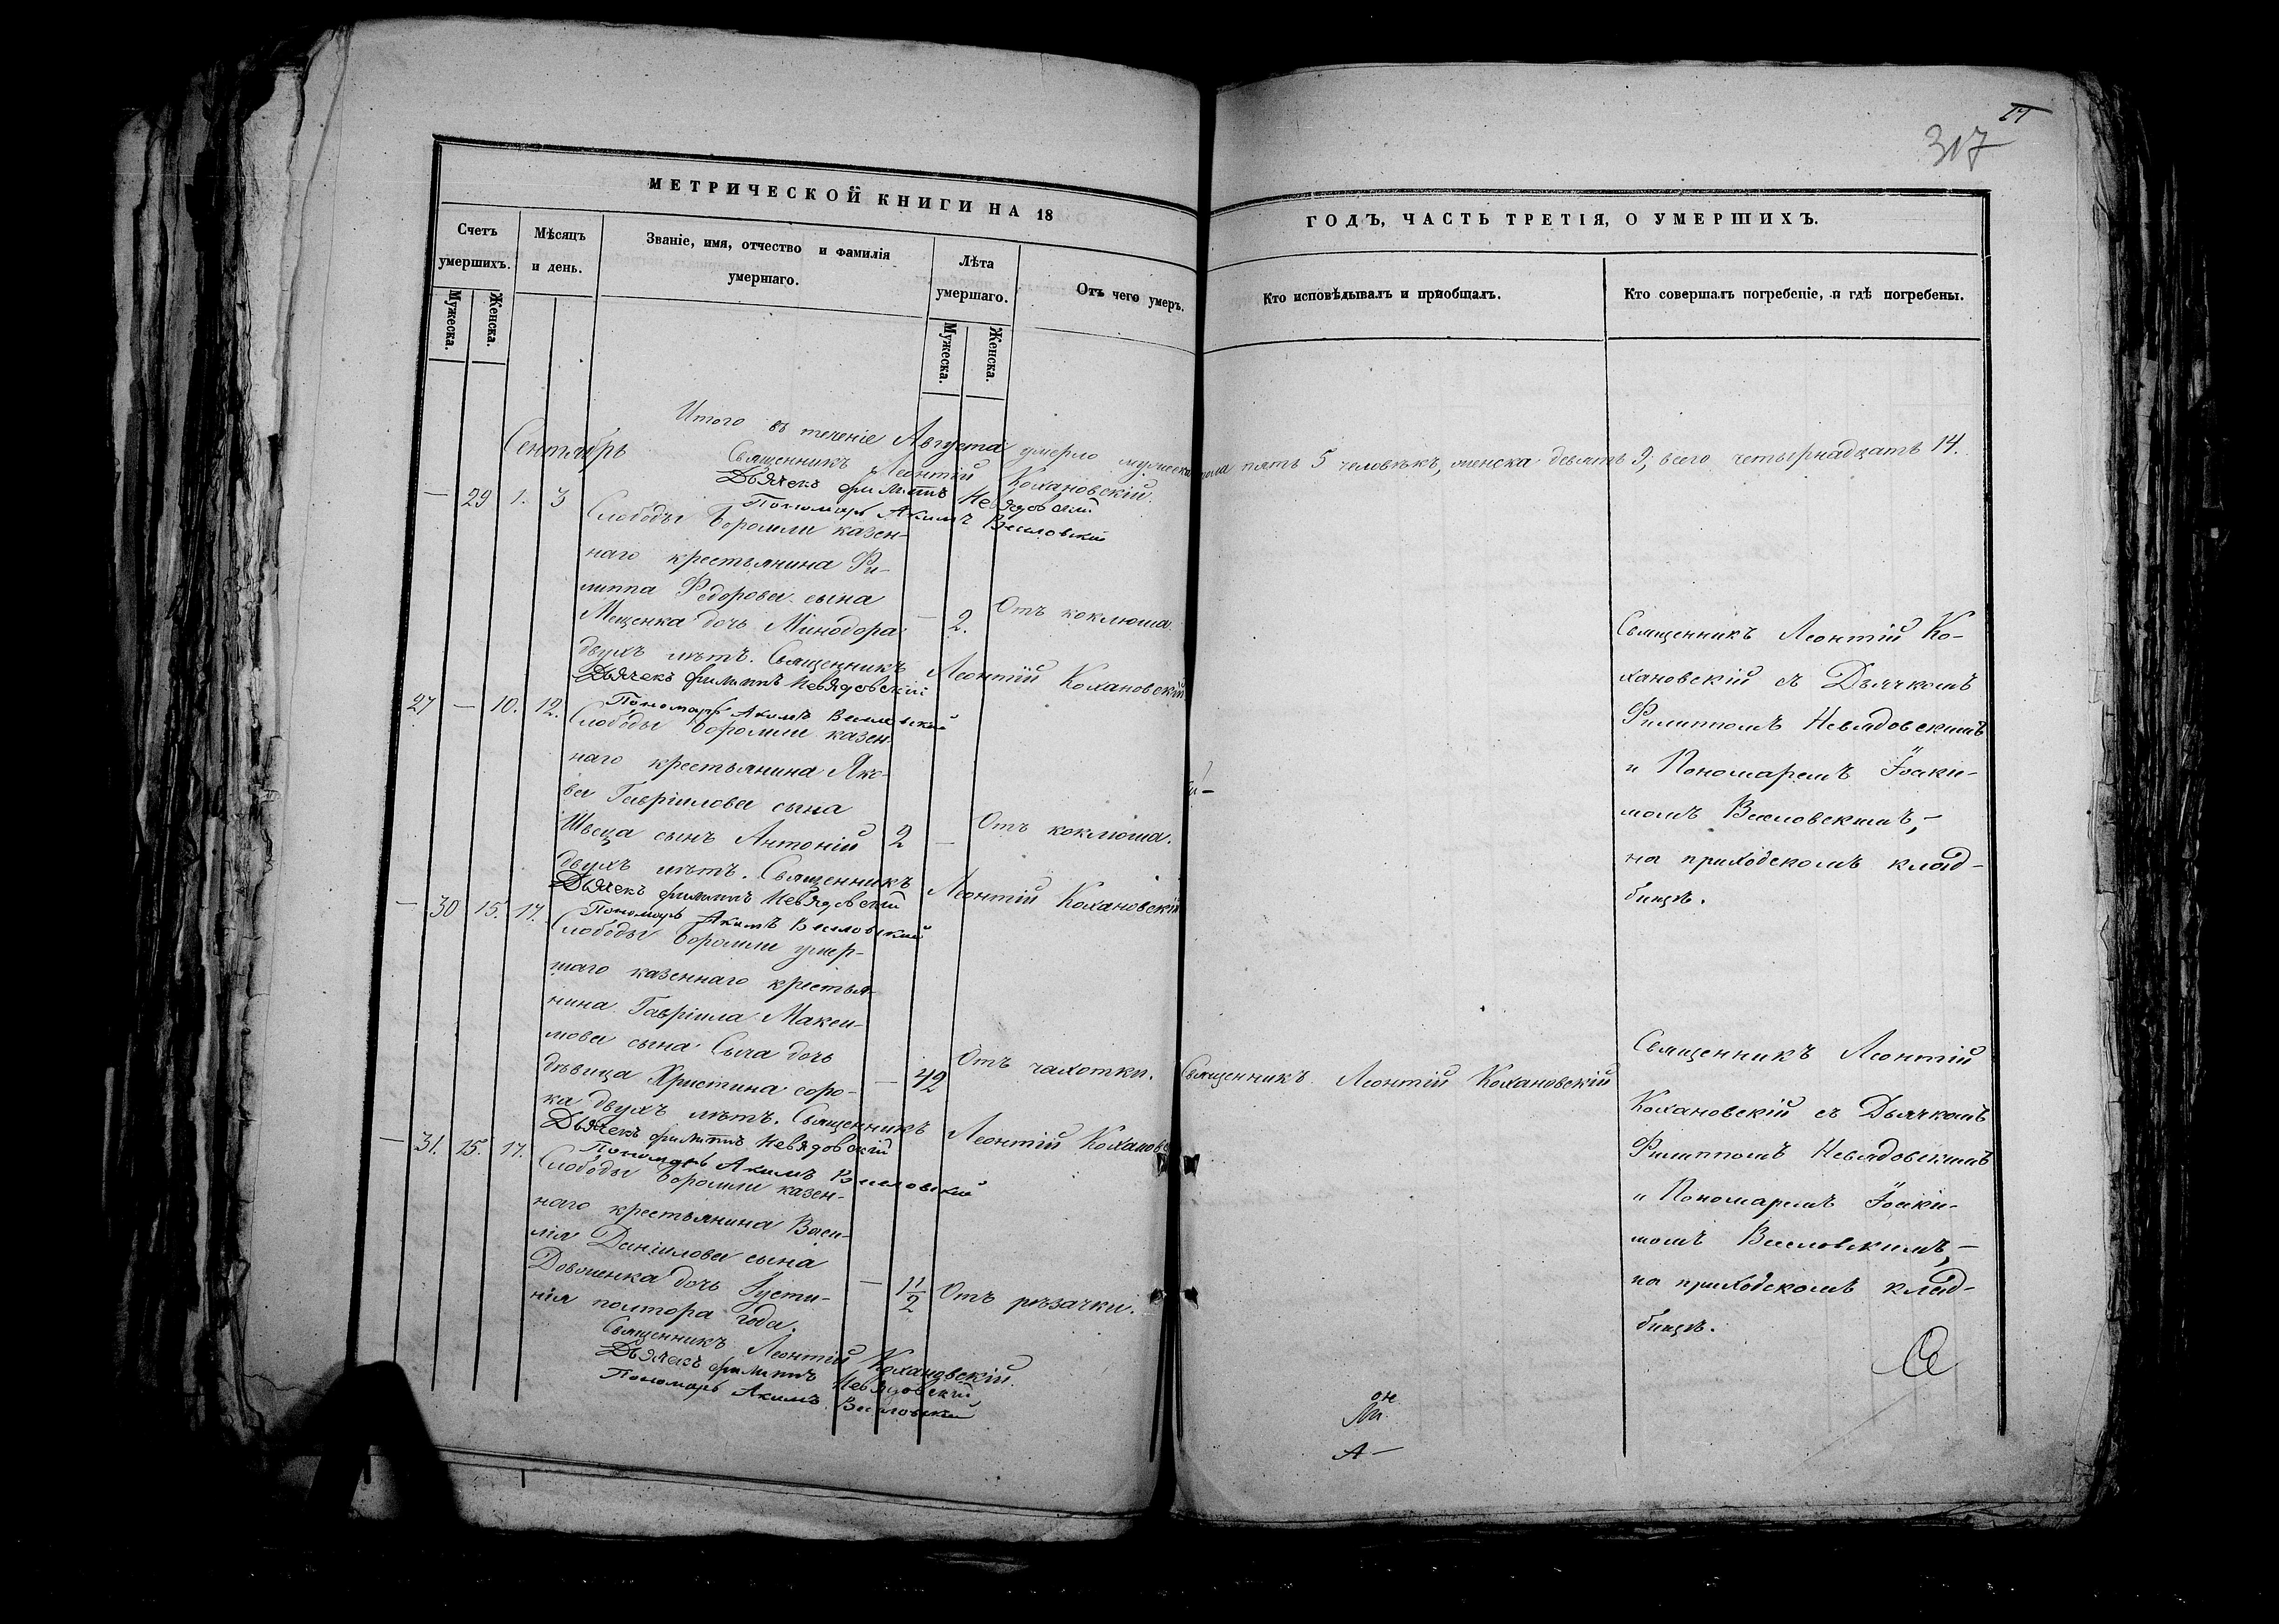 317
МЕТРИЧЕСКОЙ КНИГИ НА 18
ГОДЪ, ЧАСТЬ ТРЕТІЯ, О УМЕРШИХЪ.
Счетъ умершихъ.
Мужеска.
Женска.
Мѣсяцъ и день.
Званіе, имя, отчество и фамилія
умершаго.
Лѣта умершаго.
Мужеска.
Женска.
Отъ чего умеръ.
Кто исповѣдывалъ и пріобщалъ.
Кто совершалъ погребеніе, и гдѣ погребены.
Итого въ теченіе Августа умерло мужеска пола пять 5 человѣкъ, женска девять 9, всего четырнадцать 14.
Священникъ Леонтій Кохановскій.
Дьячекъ Филиппъ Невядовскій
Пономарь Акимъ Веселовскій
Сентябрь
— 29 1. 3
Слободы Боромли казен-
наго крестьянина Фи-
липпа Федорова сына
Мещенка дочь Минодора — 2. Отъ коклюша.
двухъ лѣтъ. Священникъ Леонтій Кохановскій
Дьячекъ Филиппъ Невядовскій
Пономарь Акимъ Веселовскій
27 — 10. 12.
Слободы Боромли казен-
наго крестьянина Яко-
ва Гавріилова сына
Швеца сынъ Антоній 2 — Отъ коклюша.
двухъ лѣтъ. Священникъ Леонтій Кохановскій
Дьячекъ Филиппъ Невядовскій
Пономарь Акимъ Веселовскій
Священникъ Леонтій Ко-
хановскій съ Дьячкомъ
Филиппомъ Невядовскимъ
и Пономаремъ Іоаки-
момъ Веселовскимъ,—
на приходскомъ клад-
бищѣ.
— 30 15. 17.
Слободы Боромли умер-
шаго казеннаго крестья-
нина Гавріила Макси-
мова сына Сыча дочь
дѣвица Христина соро- — 42 Отъ чахотки. Священникъ Леонтій Кохановскій
ка двухъ лѣтъ. Священникъ Леонтій Коханов
Дьячекъ Филиппъ Невядовскій
Пономарь Акимъ Веселовскій
— 31. 15. 17.
Слободы Боромли казен-
наго крестьянина Васи-
лія Даніилова сына
Довженка дочь Іусти- — 1 1/2 Отъ рѣзачки.
нія полтора года.
Священникъ Леонтій Кохановскій.
Дьячекъ Филиппъ Невядовскій
Пономарь Акимъ Веселовскій
Священникъ Леонтій
Кохановскій съ Дьячкомъ
Филиппомъ Невядовскимъ
и Пономаремъ Іоаки-
момъ Веселовскимъ,—
на приходскомъ клад-
бищѣ.